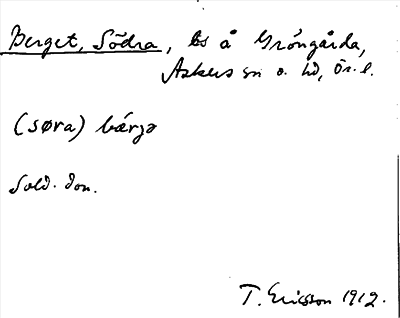 Berget, Södra, ls å Gröngårda,
Askers sn o. hd, Ör. l.
(søra) bárjə
Sold. don.
T. Ericsson 1912.